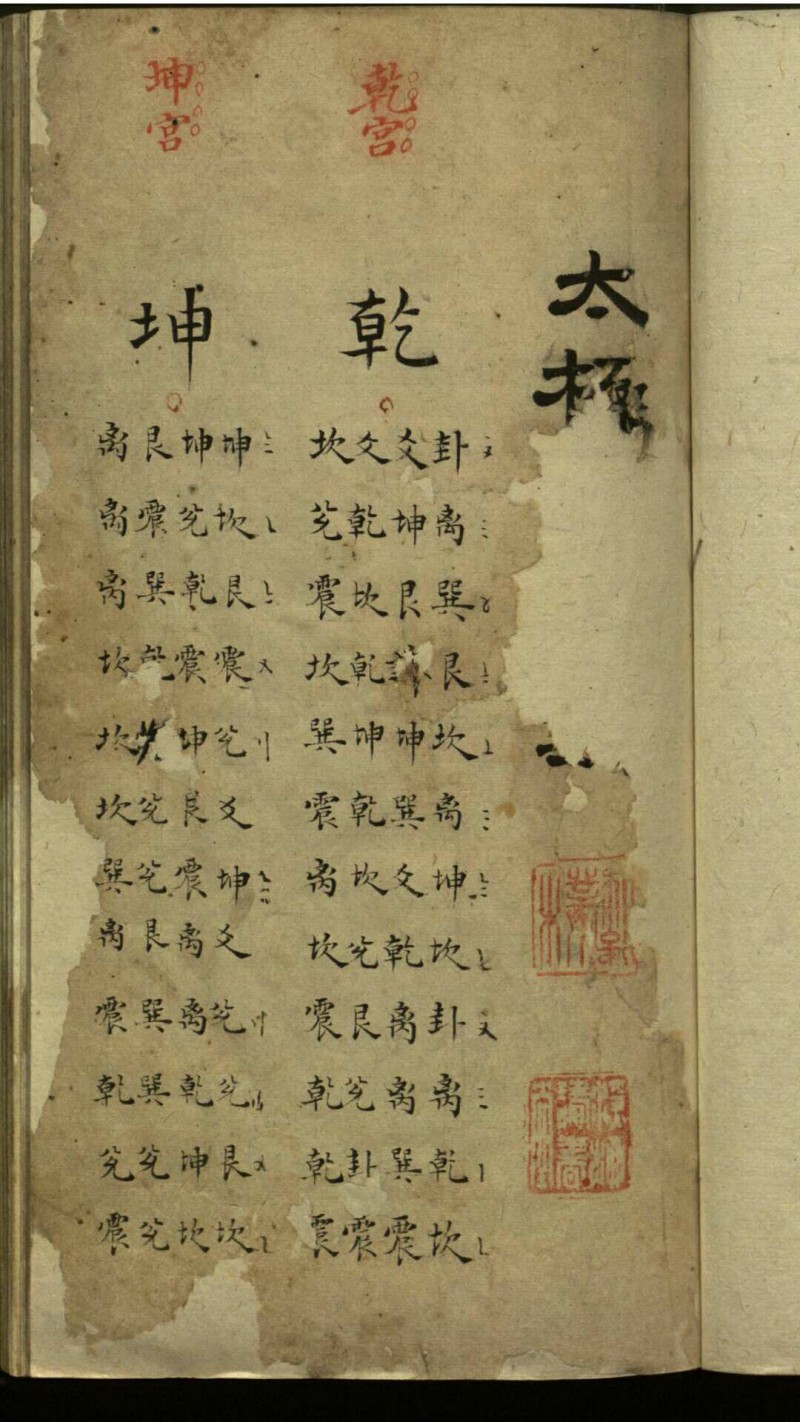 太極
乾宫
乾
卦离巽艮坎离坤坎卦离乾坎
爻坤艮坤巽爻乾离离巽震
爻乾坎乾坤乾坎兊艮兊卦震
坎兊震坎巽震离坎震乾乾震
坤宫
坤
坤坎艮震兊爻坤爻兊兊艮坎
坤兊乾震坤艮震离离乾坤坎
艮震巽乾兊兊艮巽巽兊兊
离离离坎坎坎巽离震乾兊震